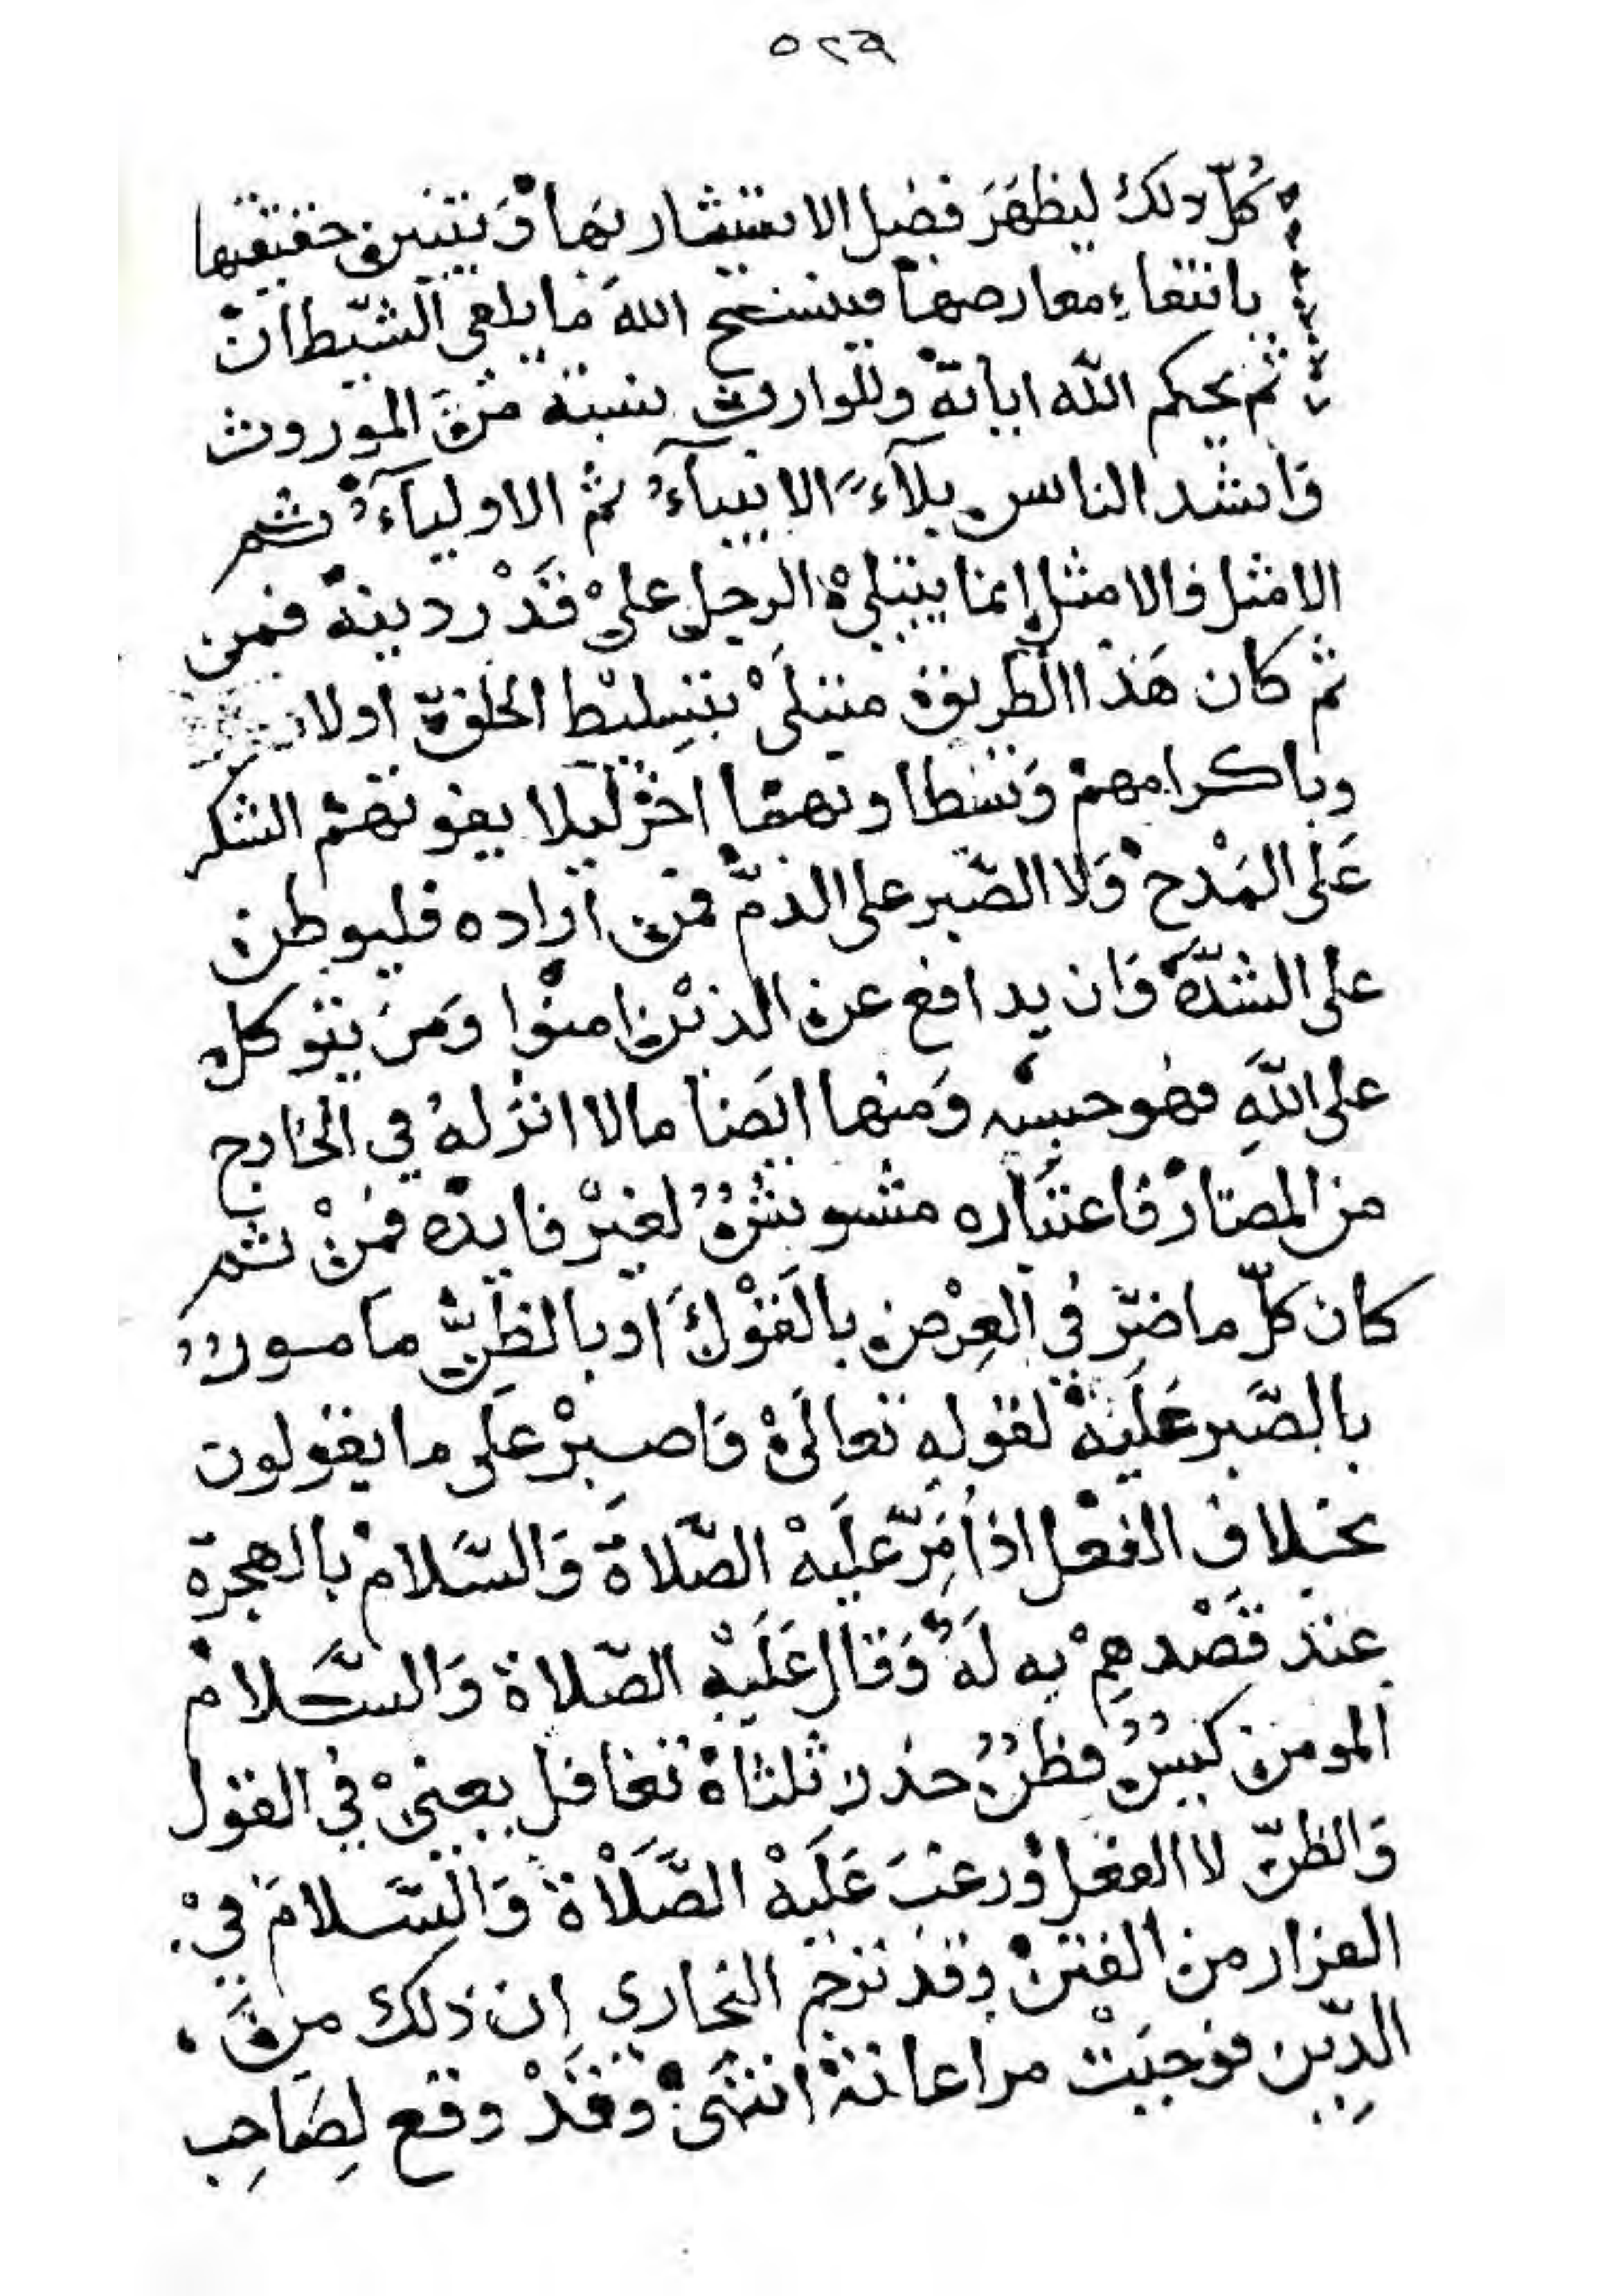 ٥٢٩
كُلّ ذلك ليظهَرَ فضل الاستشار بها وَيتبين حقيقتها
بانتفاءِ معارضها فينسخ اللهَ ما يلقى الشّيطان
ثم يحكم الله اياته وللوارث نسبة منَ الموروث
وَاشد الناس بلآءً الانبيآءُ ثم الاوليآءُ ثم
الامثل فالامثل إنما يبتلىْ الرجل علىْ قَدْر دينه فمن
ثم كان هَذا الطريق مبتلَىْ بتسِليْط الخلق اولا
وباكرامهمْ وَسَطا وبهما اخرْ ليلا يفوتهمْ الشكر
عَلى المَدْح وَلا الصّبر على الذمّ فمن اراده فليوطن
على الشدّة وَان يدافع عن الذيْن امنوْا وَمَن يتوكل
على اللهِ فهو حسبْه وَمنها ايَضا مالا انزلهُ في الخارج
من المصار فاعتبَاره مشويشٌ لغيْر فايدة فمنْ ثم
كان كلّ ما ضرّ في العِرْض بالقوْلَ او بالظنّ مامورٌ
بالصّبر عَليْه لقولهِ تعالَىْ وَاصبِرْ على ما يقولون
بخلاف الفعْل اذ اُمِرَ عليْه الصّلاة وَالسّلام بالهجرة
عند قَصْدهِمْ به لَهُ وَقال عَلَيْهِ الصّلاة وَالسَّلام
المومن كيسٌ فطنٌ حذر ثلثاهْ تغافل يعنىْ في القول
وَالظنّ لا الفعل وَرغبَ عَلَيْهْ الصَّلَاة وَالسّلامَ فىْ
الفرار من الفتن وقد ترجم البخاري ان ذلك منَ
الدِّين فوجبَتْ مراعاته انتهَىْ وقَدْ وقع لِصَاحِب